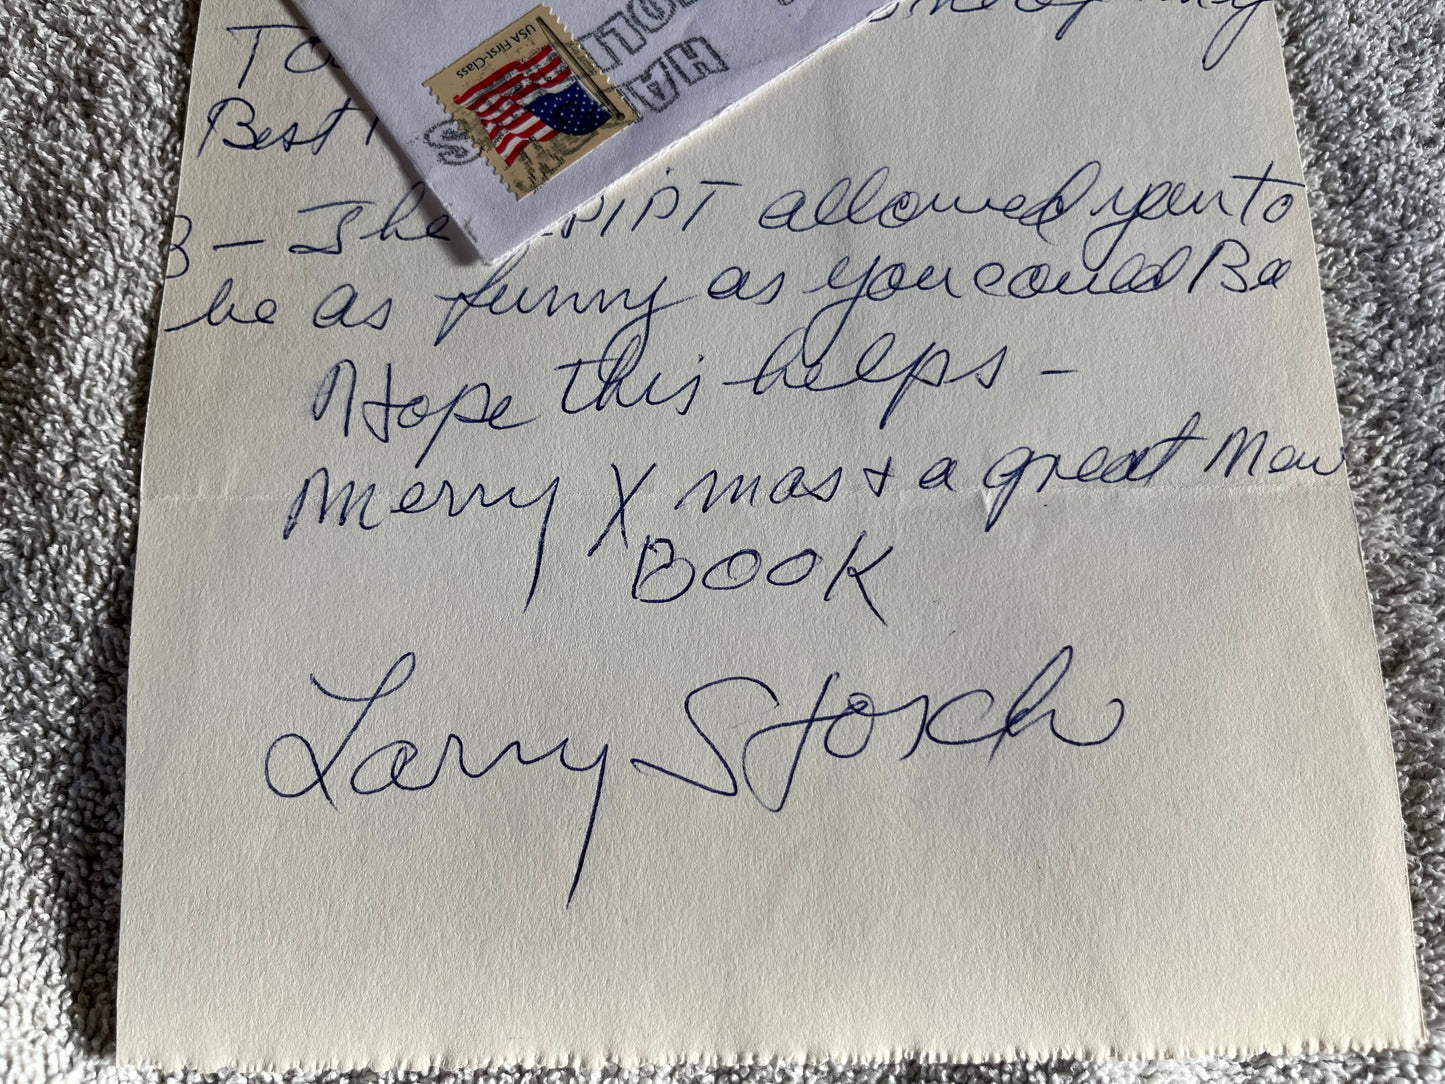 USA First-Class
HA
Best
3 - The SCRIPT allowed you to
be as funny as you could Be
Hope this helps -
Merry Xmas + a great New
BOOK
Larry Storch